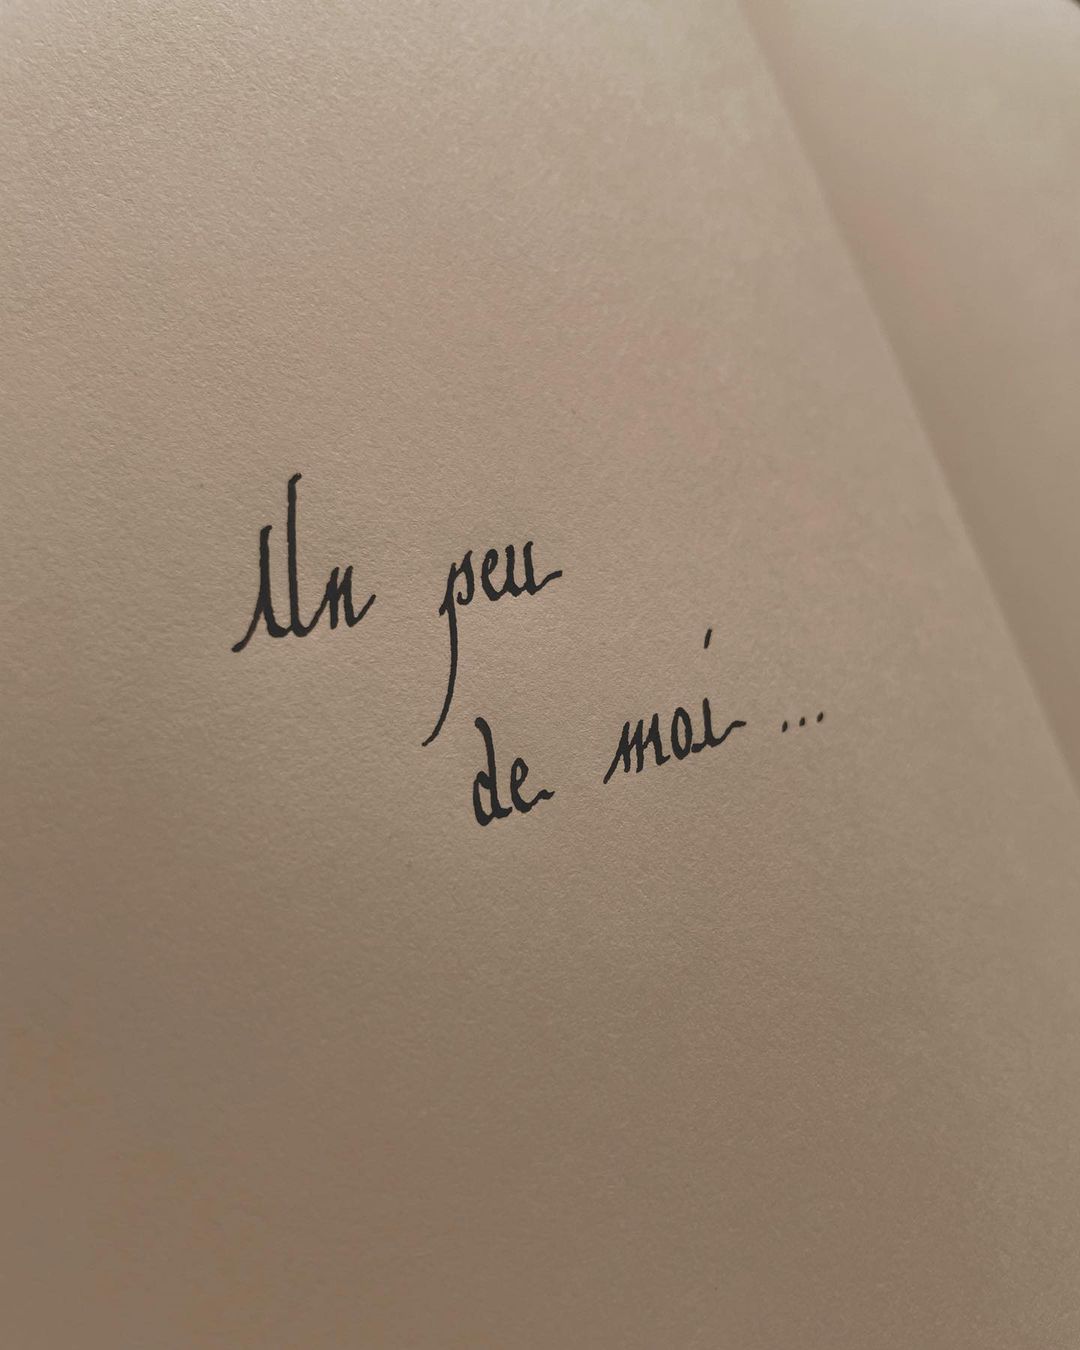 Un peu
de moi ...